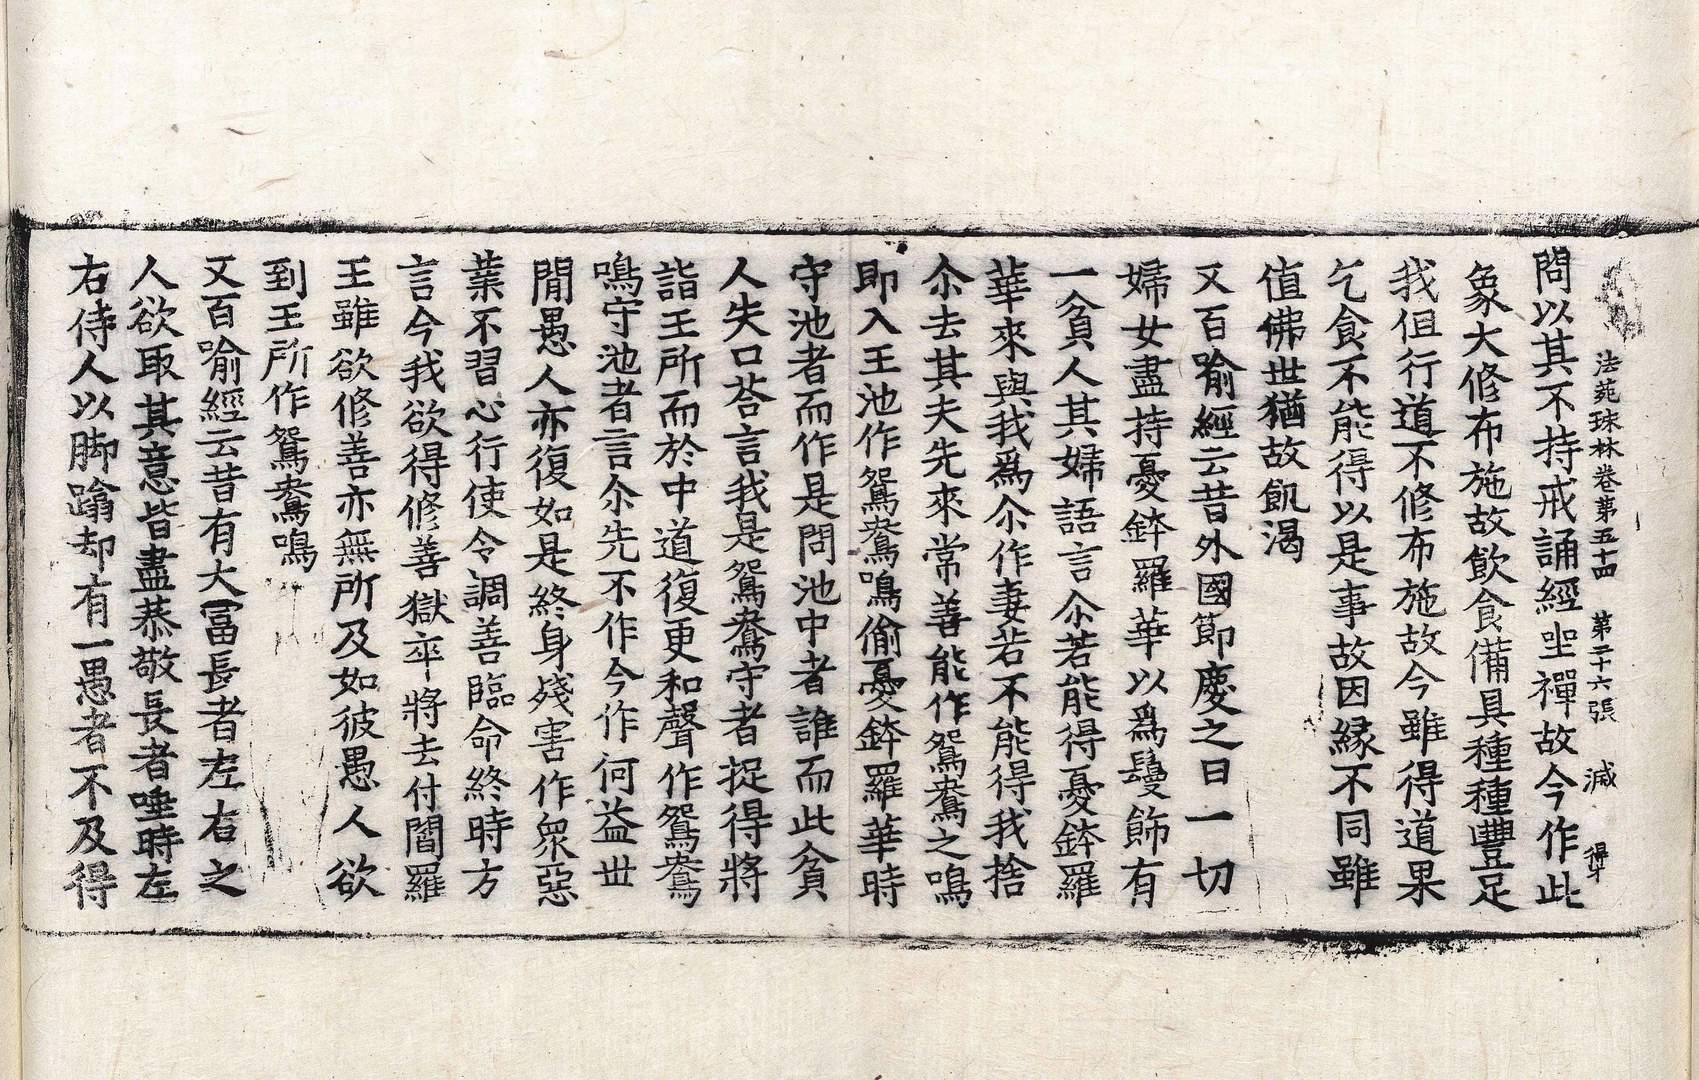 法苑珠林卷第五十四 第二十六張 減 得中
問以其不持戒誦經坐禪故今作此
象大修布施故飲食備具種種豐足
我但行道不修布施故今雖得道果
乞食不能得以是事故因緣不同雖
值佛世猶故飢渴
又百喻經云昔外國節慶之日一切
婦女盡持憂鉢羅華以爲鬘飾有
一貧人其婦語言尒若能得憂鉢羅
華來與我爲尒作妻若不能得我捨
尒去其夫先來常善能作鴛鴦之鳴
即入王池作鴛鴦鳴偷憂鉢羅華時
守池者而作是問池中者誰而此貧
人失口荅言我是鴛鴦守者捉得將
詣王所而於中道復更和聲作鴛鴦
鳴守池者言尒先不作今作何益世
間愚人亦復如是終身殘害作衆惡
業不習心行使令調善臨命終時方
言今我欲得修善獄卒將去付閻羅
王雖欲修善亦無所及如彼愚人欲
到王所作鴛鴦鳴
又百喻經云昔有大富長者左右之
人欲取其意皆盡恭敬長者唾時左
右侍人以脚蹹却有一愚者不及得